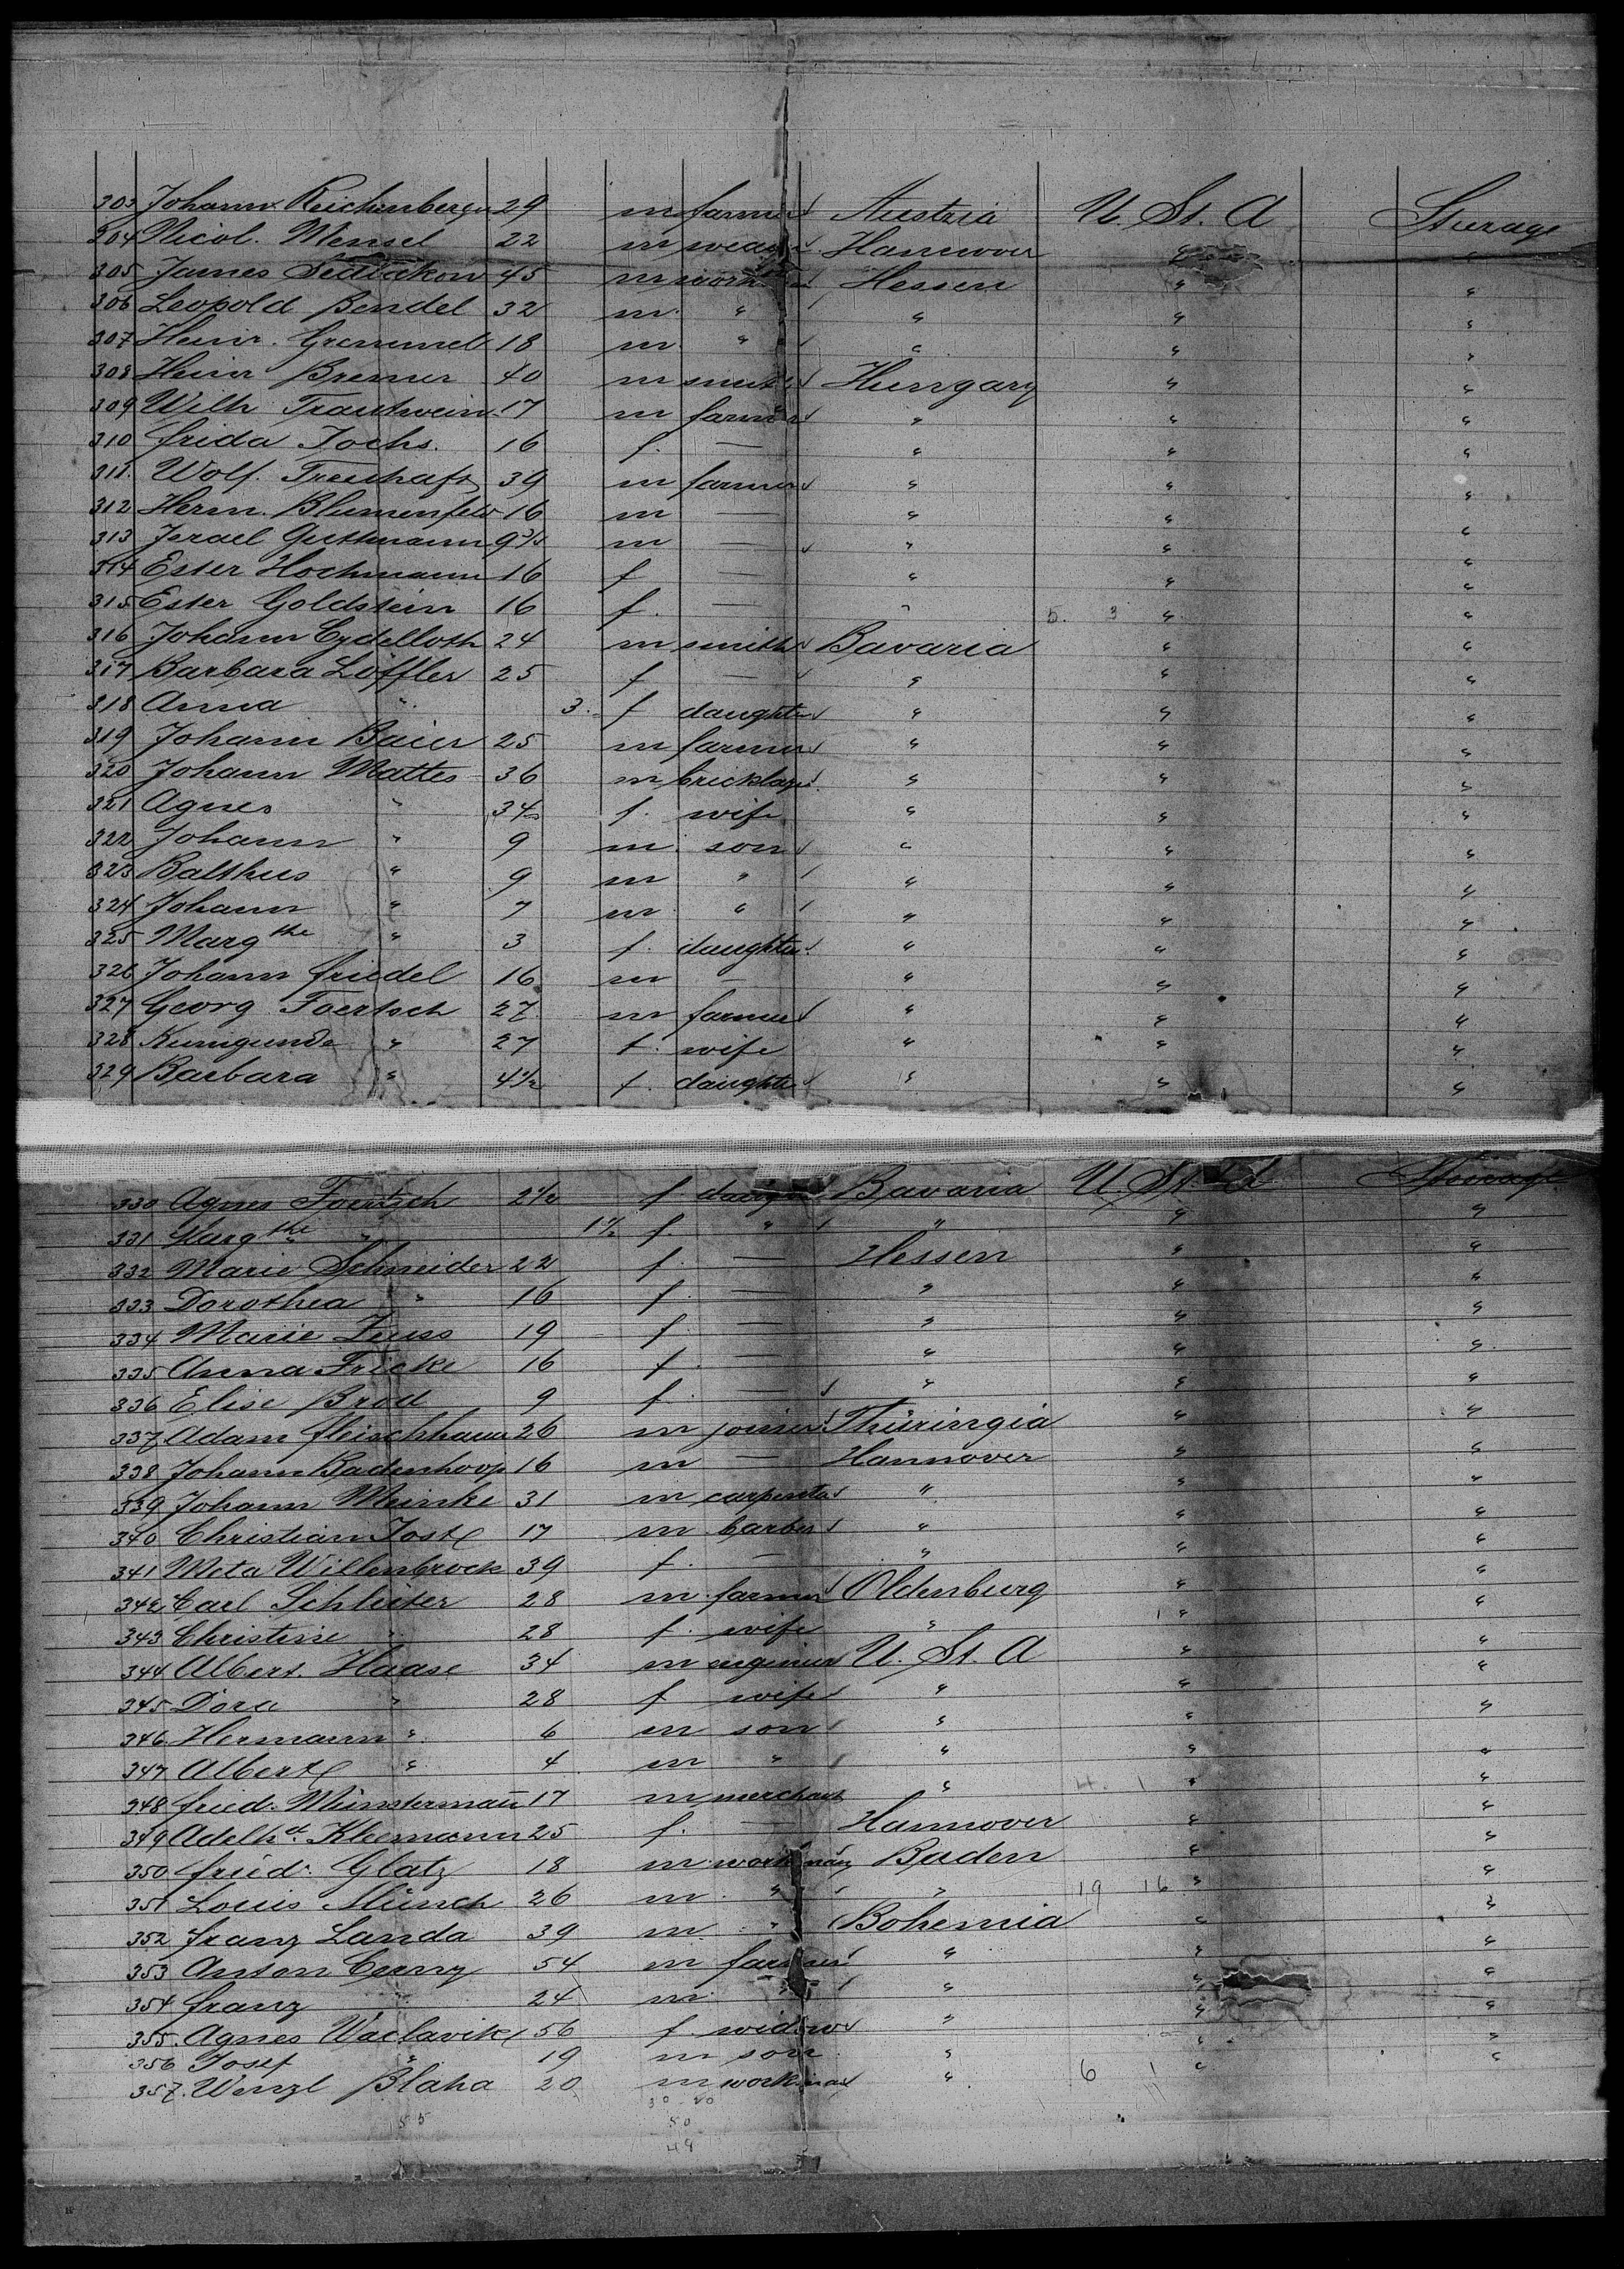 303 Johann Reichenberger 29 m farmer Austria U. St. A Sterage
304 Nicol. Mensel 22 m weaver Hannover "
305 James 45 m workman Hessen " "
306 Leopold Bendel 32 m " " " "
307 Heinr. 18 m " " " "
308 Heinr Bremer 40 m smith Hungary " "
309 Wilh Trautwein 17 m farmer " " "
310 Frida Jochs. 16 f. — " " "
311. Wolf. 39 m farmer " " "
312 Herm. Blumenfeld 16 m — " " "
313 Israel Guttmann 9 m — " " "
314 Ester Hochmann 16 f — " " "
315 Ester Goldstein 16 f. — " 5. 3 " "
316 Johann 24 m smith Bavaria " "
317 Barbara Löffler 25 f — " " "
318 Anna " 3. f daughter " " "
319 Johann Baier 25 m farmer " " "
320 Johann Mattes 36 m bricklayer " " "
321 Agnes " 34 f. wife " " "
322 Johann " 9 m. son " " "
323 Balthus " 9 m " " " "
324 Johann " 7 m " " " "
325 Marg the " 3 f. daughter " " "
326 Johann Friedel 16 m — " " "
327 Georg Foertsch 27 m farmer " " "
328 Kunigunde " 27 f. wife " " "
329 Barbara " 4 1/2 f. daughter " " "
330 Agnes Foertsch 2 1/2 f daughter Bavaria U. St. A Sterage
331 Marg the " 1 f. " " " "
332 Marie Schneider 22 f. — Hessen " "
333 Dorothea " 16 f. — " " "
334 Marie 19 f. — " " "
335 Anna Fricke 16 f. — " " "
336 Elise Brod 9 f. — " " "
337 Adam Fleischhauer 26 m joiner Thüringia " "
338 Johann Badenhoop 16 m — Hannover " "
339 Johann Meinke 31 m carpenter " " "
340 Christian Jost 17 m barber " " "
341 Meta Willenbrock 39 f. — " " "
342 Carl Schlüter 28 m farmer Oldenburg " "
343 Christine " 28 f. wife " 1 " "
344 Albert Haase 34 m engineer U. St. A " "
345 Dora " 28 f wife " " "
346 Hermann " 6 m son " " "
347 Albert " 4 m " " " "
348 Fried. Münstermann 17 m merchant " 4. 1 " "
349 Adelh d. Kleemann 25 f. — Hannover " "
350 Fried. Glatz 18 m workman Baden " "
351 Louis Münch 26 m " " 19 16 " "
352 Franz Landa 39 m " Bohemia " "
353 Anton Cerny 54 m farmer " " "
354 Franz " 24 m " " " "
355. Agnes Waclavik 56 f. widow " " "
356 Josef " 19 m son " " "
357. Wenzl Blaha 20 m workman " 6 1 " "
55
50